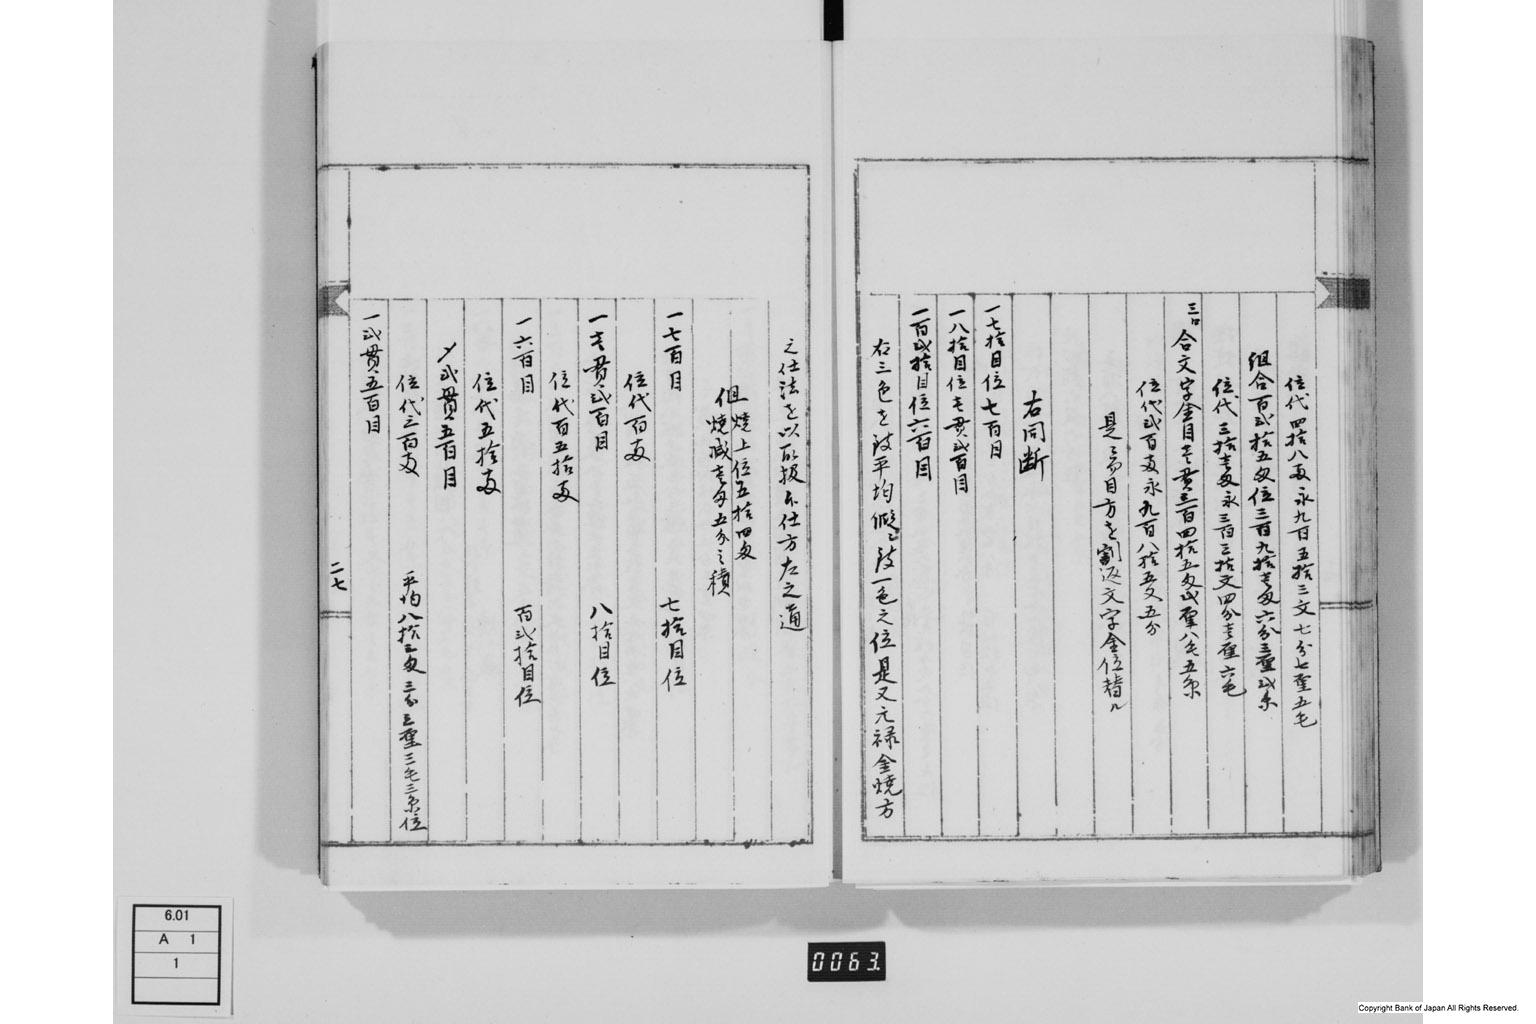 位代四拾八両永九百五拾三文七分七厘五毛
組合百弐拾五匁位三百九拾壱匁六分三厘弐糸
位代三拾壱両永三百三拾文四分壱厘六毛
三口合文字金目壱貫三百四拾五匁弐厘八毛五糸
位代弐百両永九百八拾五文五分
是ニ而目方を割返文字金位積ル
右同断
一七拾目位七百目
一八拾目位壱貫弐百目
一百弐拾目位六百目
右三色を致平均候而致一色之位是又元禄金焼方
之仕法を以取扱候仕方左之通
但焼上位五拾四匁
焼減壱匁五分之積
一七百目 七拾目位
位代百両
一壱貫弐百目 八拾目位
位代百五拾両
一六百目 百弐拾目位
位代五拾両
〆弐貫五百目
位代三百両 平均八拾三匁三分三厘三毛三糸位
一弐貫五百目
二七
6.01
A 1
1
0063.
Copyright Bank of Japan All Rights Reserved.